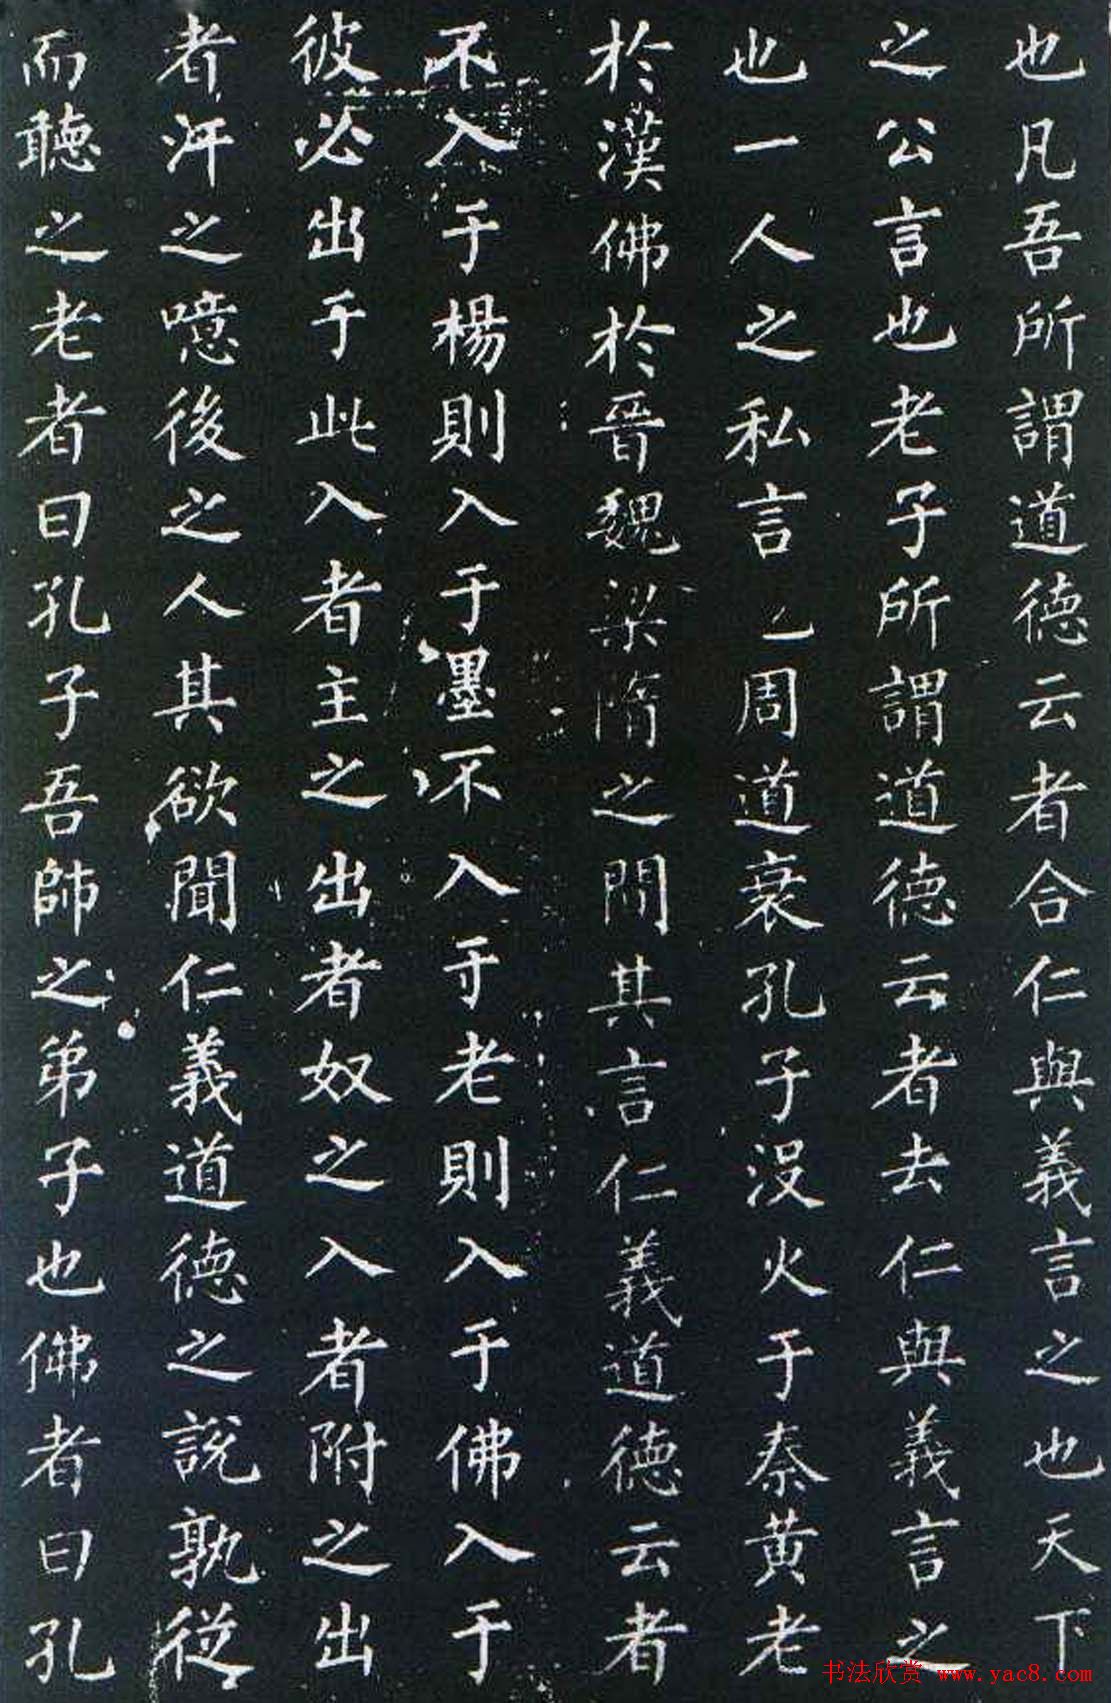 也凡吾所謂道德云者合仁與義言之也天下
之公言也老子所謂道德云者去仁與義言之
也一人之私言也周道衰孔子没火于秦黄老
於漢佛於晉魏梁隋之間其言仁義道德云者
不入于楊則入于墨不入于老則入于佛入于
彼必出于此入者主之出者奴之入者附之出
者汙之噫後之人其欲聞仁義道德之説孰從
而聽之老者曰孔子吾師之弟子也佛者曰孔
书法欣赏 www.yac8.com